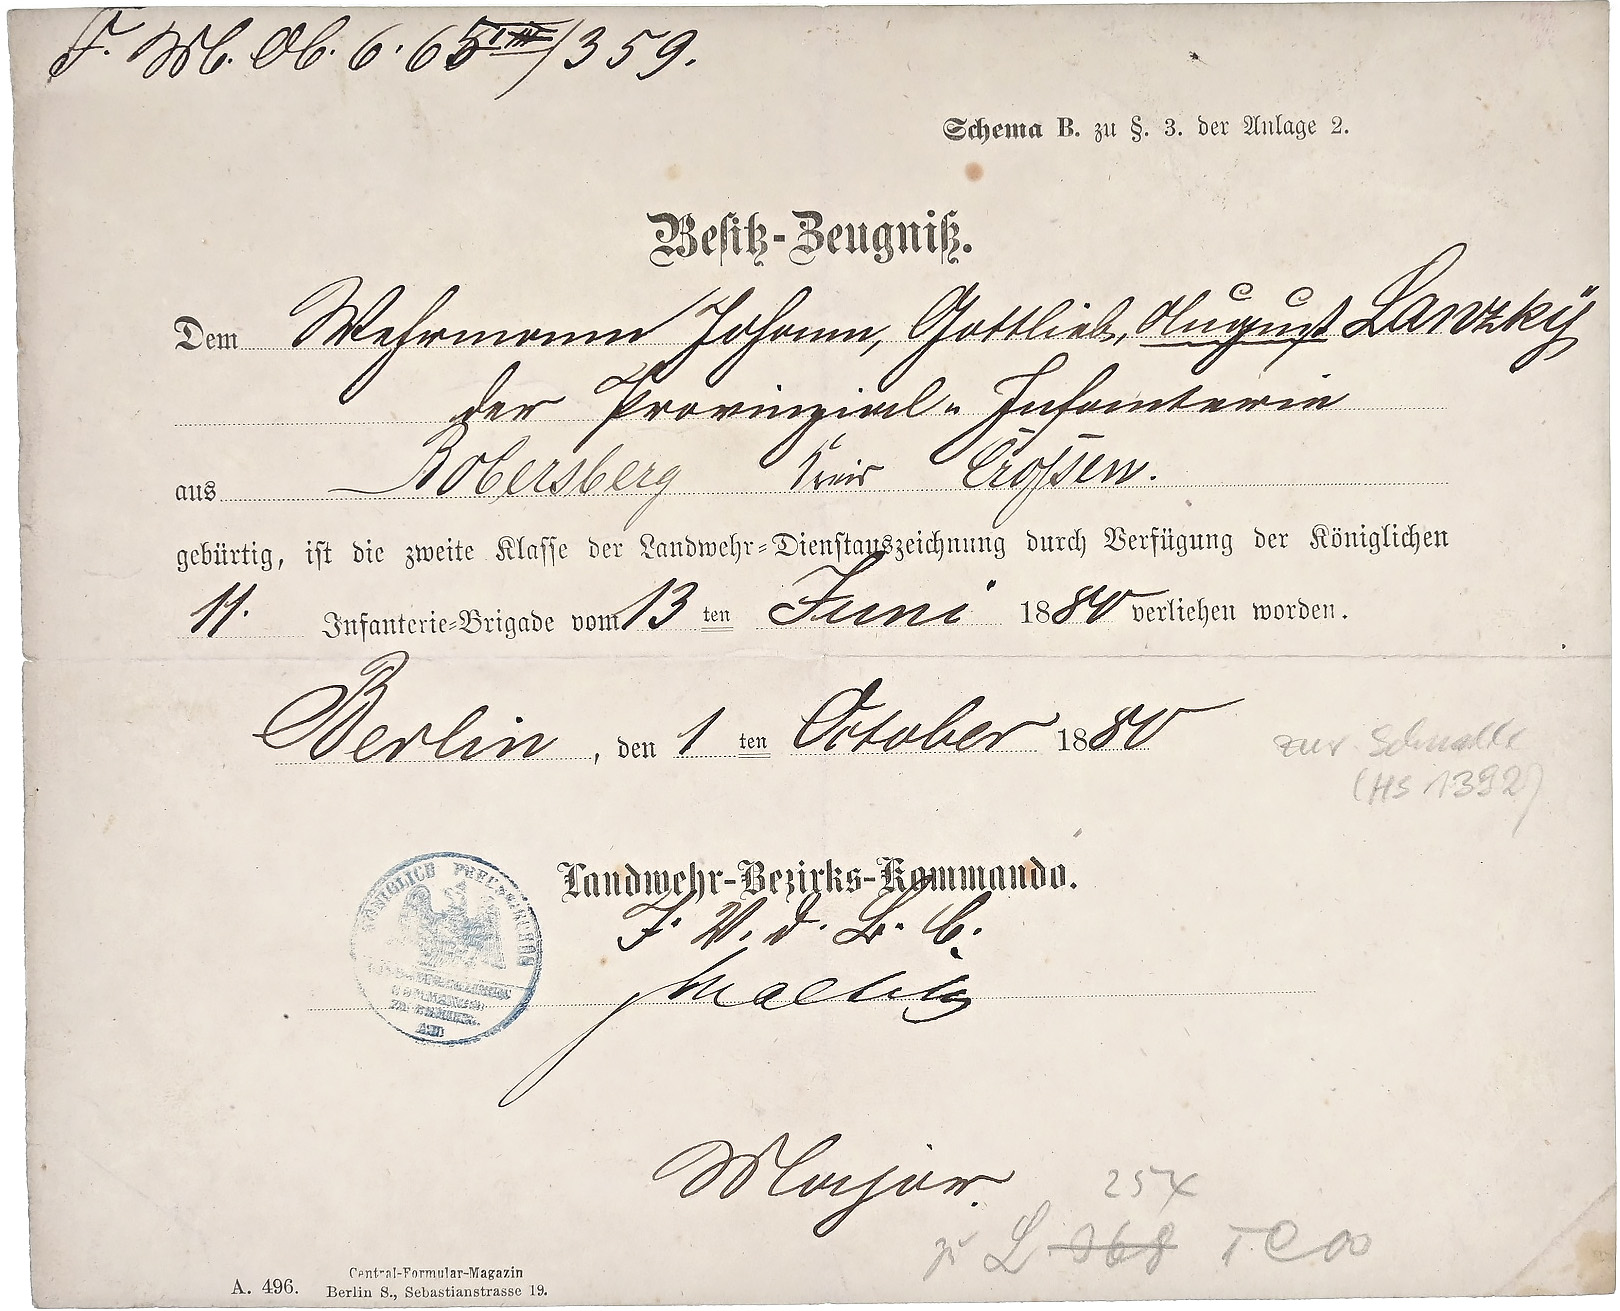 F. M. Ob. 6. 65 /359.
Schema B. zu §. 3. der Anlage 2.
Besitz-Zeugniß.
Dem Wehrmann Johann, Gottlieb, August Lanzky
der Provinzial-Infanterie
aus Bobersberg Kreis Crossen.
gebürtig, ist die zweite Klasse der Landwehr-Dienstauszeichnung durch Verfügung der Königlichen
11. Infanterie-Brigade vom 13ten Juni 1880 verliehen worden.
Berlin, den 1ten October 1880
zur Schnalle
(HS 1392)
Landwehr-Bezirks-Kommando.
KÖNIGLICH PREUSSISCHES
F. V. d. B. C.
Major.
254
zu L 068
A. 496.
Central-Formular-Magazin
Berlin S., Sebastianstrasse 19.